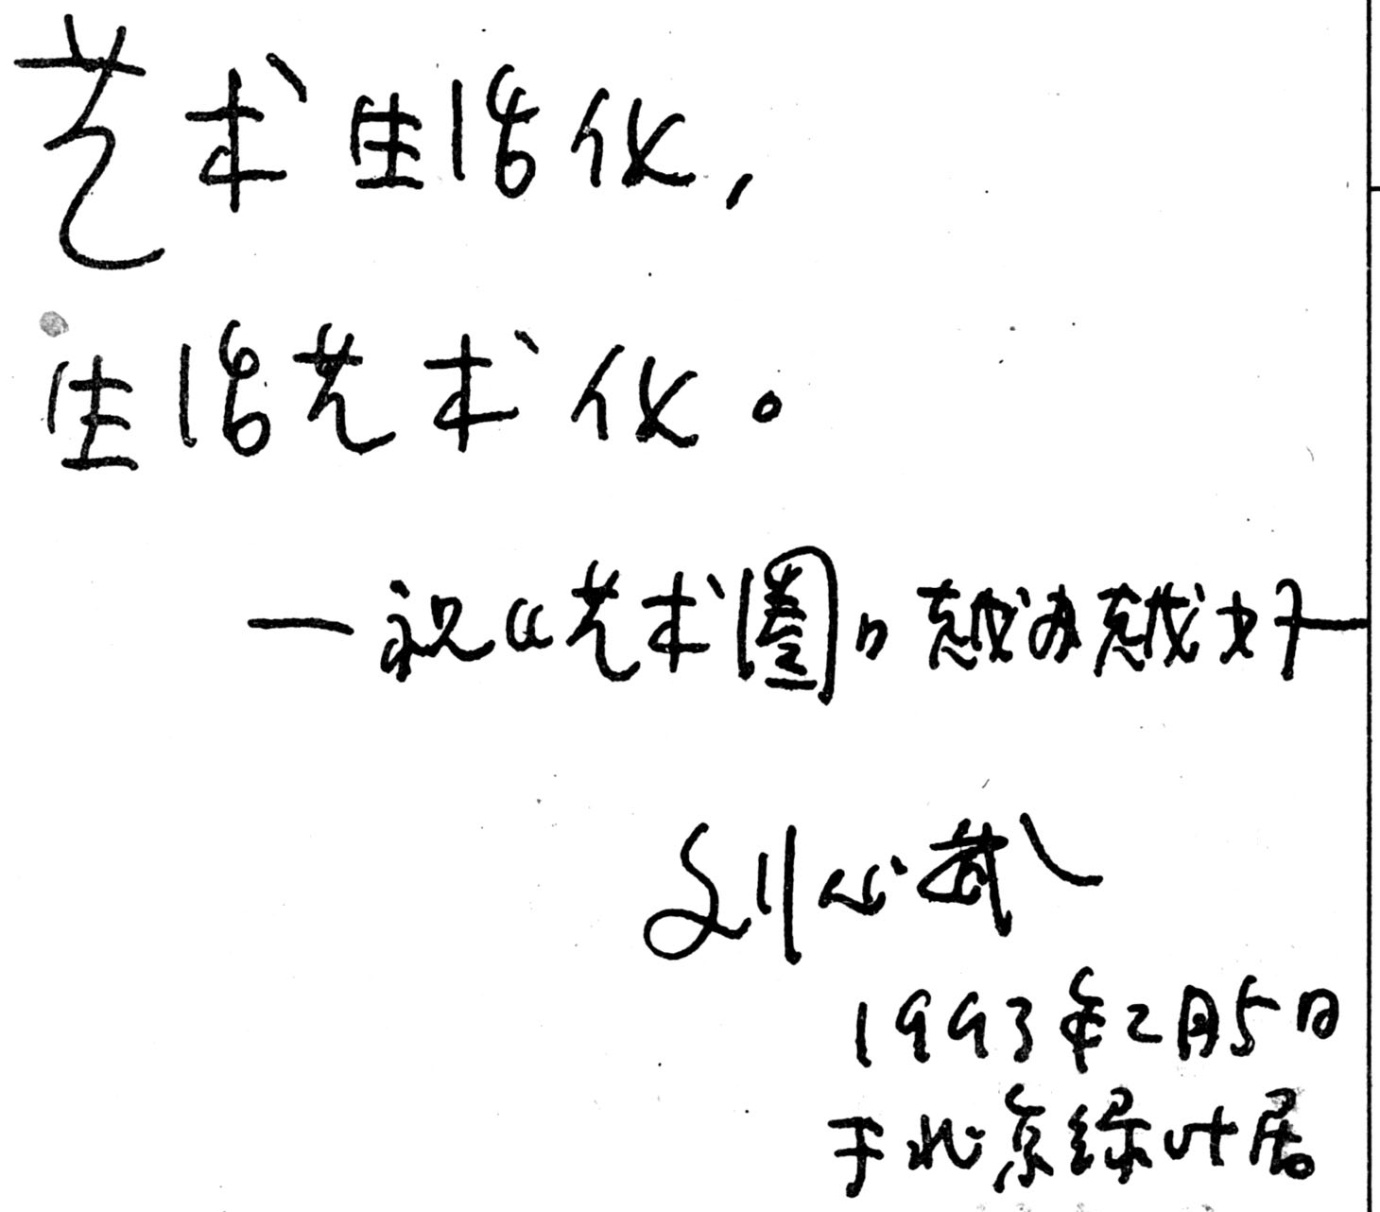 艺术生活化，
生活艺术化。
—祝“艺术圈”越办越好
刘心武
1993年2月5日
于北京绿叶居